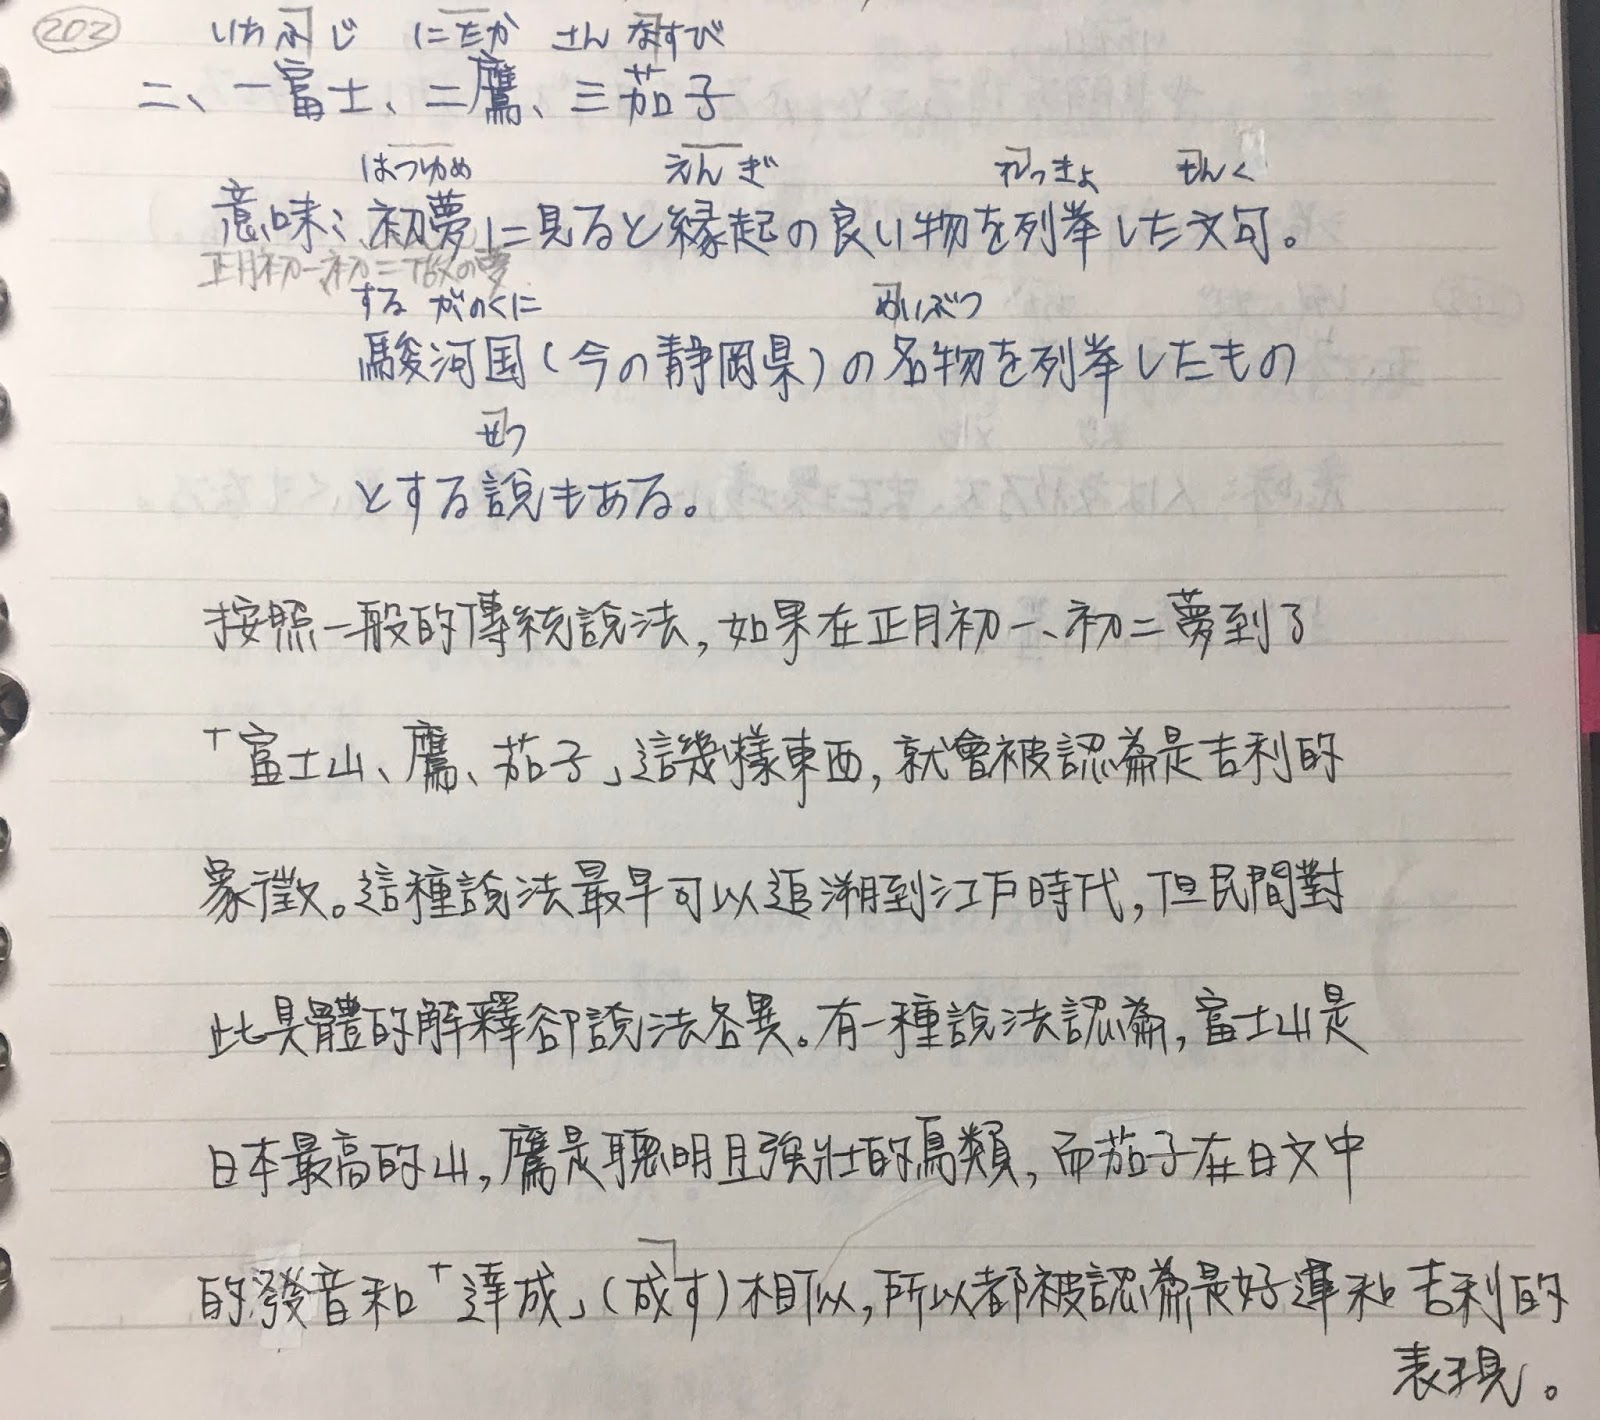 202
いちふじ にたか さんなすび
二、一富士、二鷹、三茄子
はつゆめ えんぎ れっきょ もんく
意味：初夢に見ると縁起の良い物を列挙した文句。
正月初一、初二做の夢
するがのくに めいぶつ
駿河国(今の静岡県)の名物を列挙したもの
せつ
とする説もある。
按照一般的傳統說法,如果在正月初一、初二夢到了
「富士山、鷹、茄子」這幾樣東西,就會被認為是吉利的
象徵。這種說法最早可以追溯到江戶時代,但民間對
此具體的解釋卻說法各異。有一種說法認為,富士山是
日本最高的山,鷹是聰明且強壯的鳥類,而茄子在日文中
的發音和「達成」(成す)相似,所以都被認為是好運和吉利的
表現。